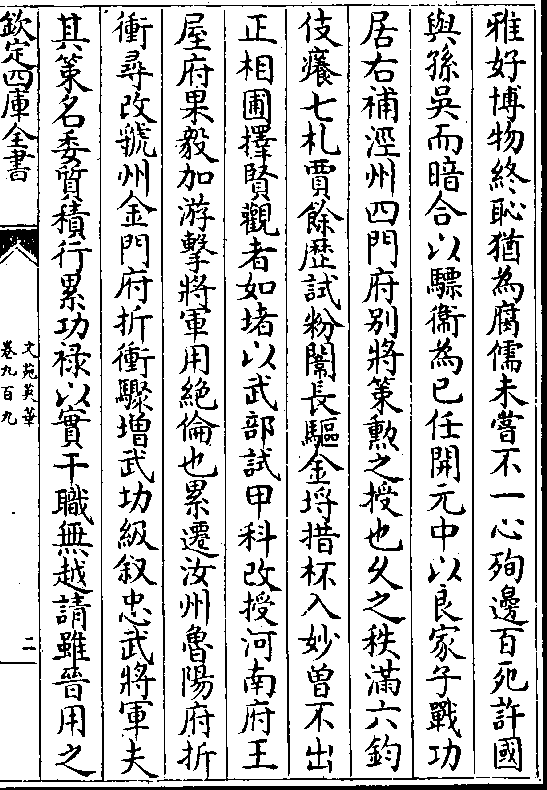 雅好博物終恥猶為腐儒未嘗不一心殉邊百死許國
與孫吳而暗合以驃衞為已任開元中以良家子戰功
居右補涇州四門府别將策勲之授也久之秩滿六鈞
伎癢七札賈餘歴試粉闈長驅金埓措杯入妙曾不出
正相圃擇賢觀者如堵以武部試甲科改授河南府王
屋府果毅加游擊將軍用絶倫也累遷汝州魯陽府折
衝尋改虢州金門府折衝驟增武功級叙忠武將軍夫
其策名委質積行累功禄以實干職無越請雖晉用之
欽定四庫全書
文苑英華
卷九百九
二